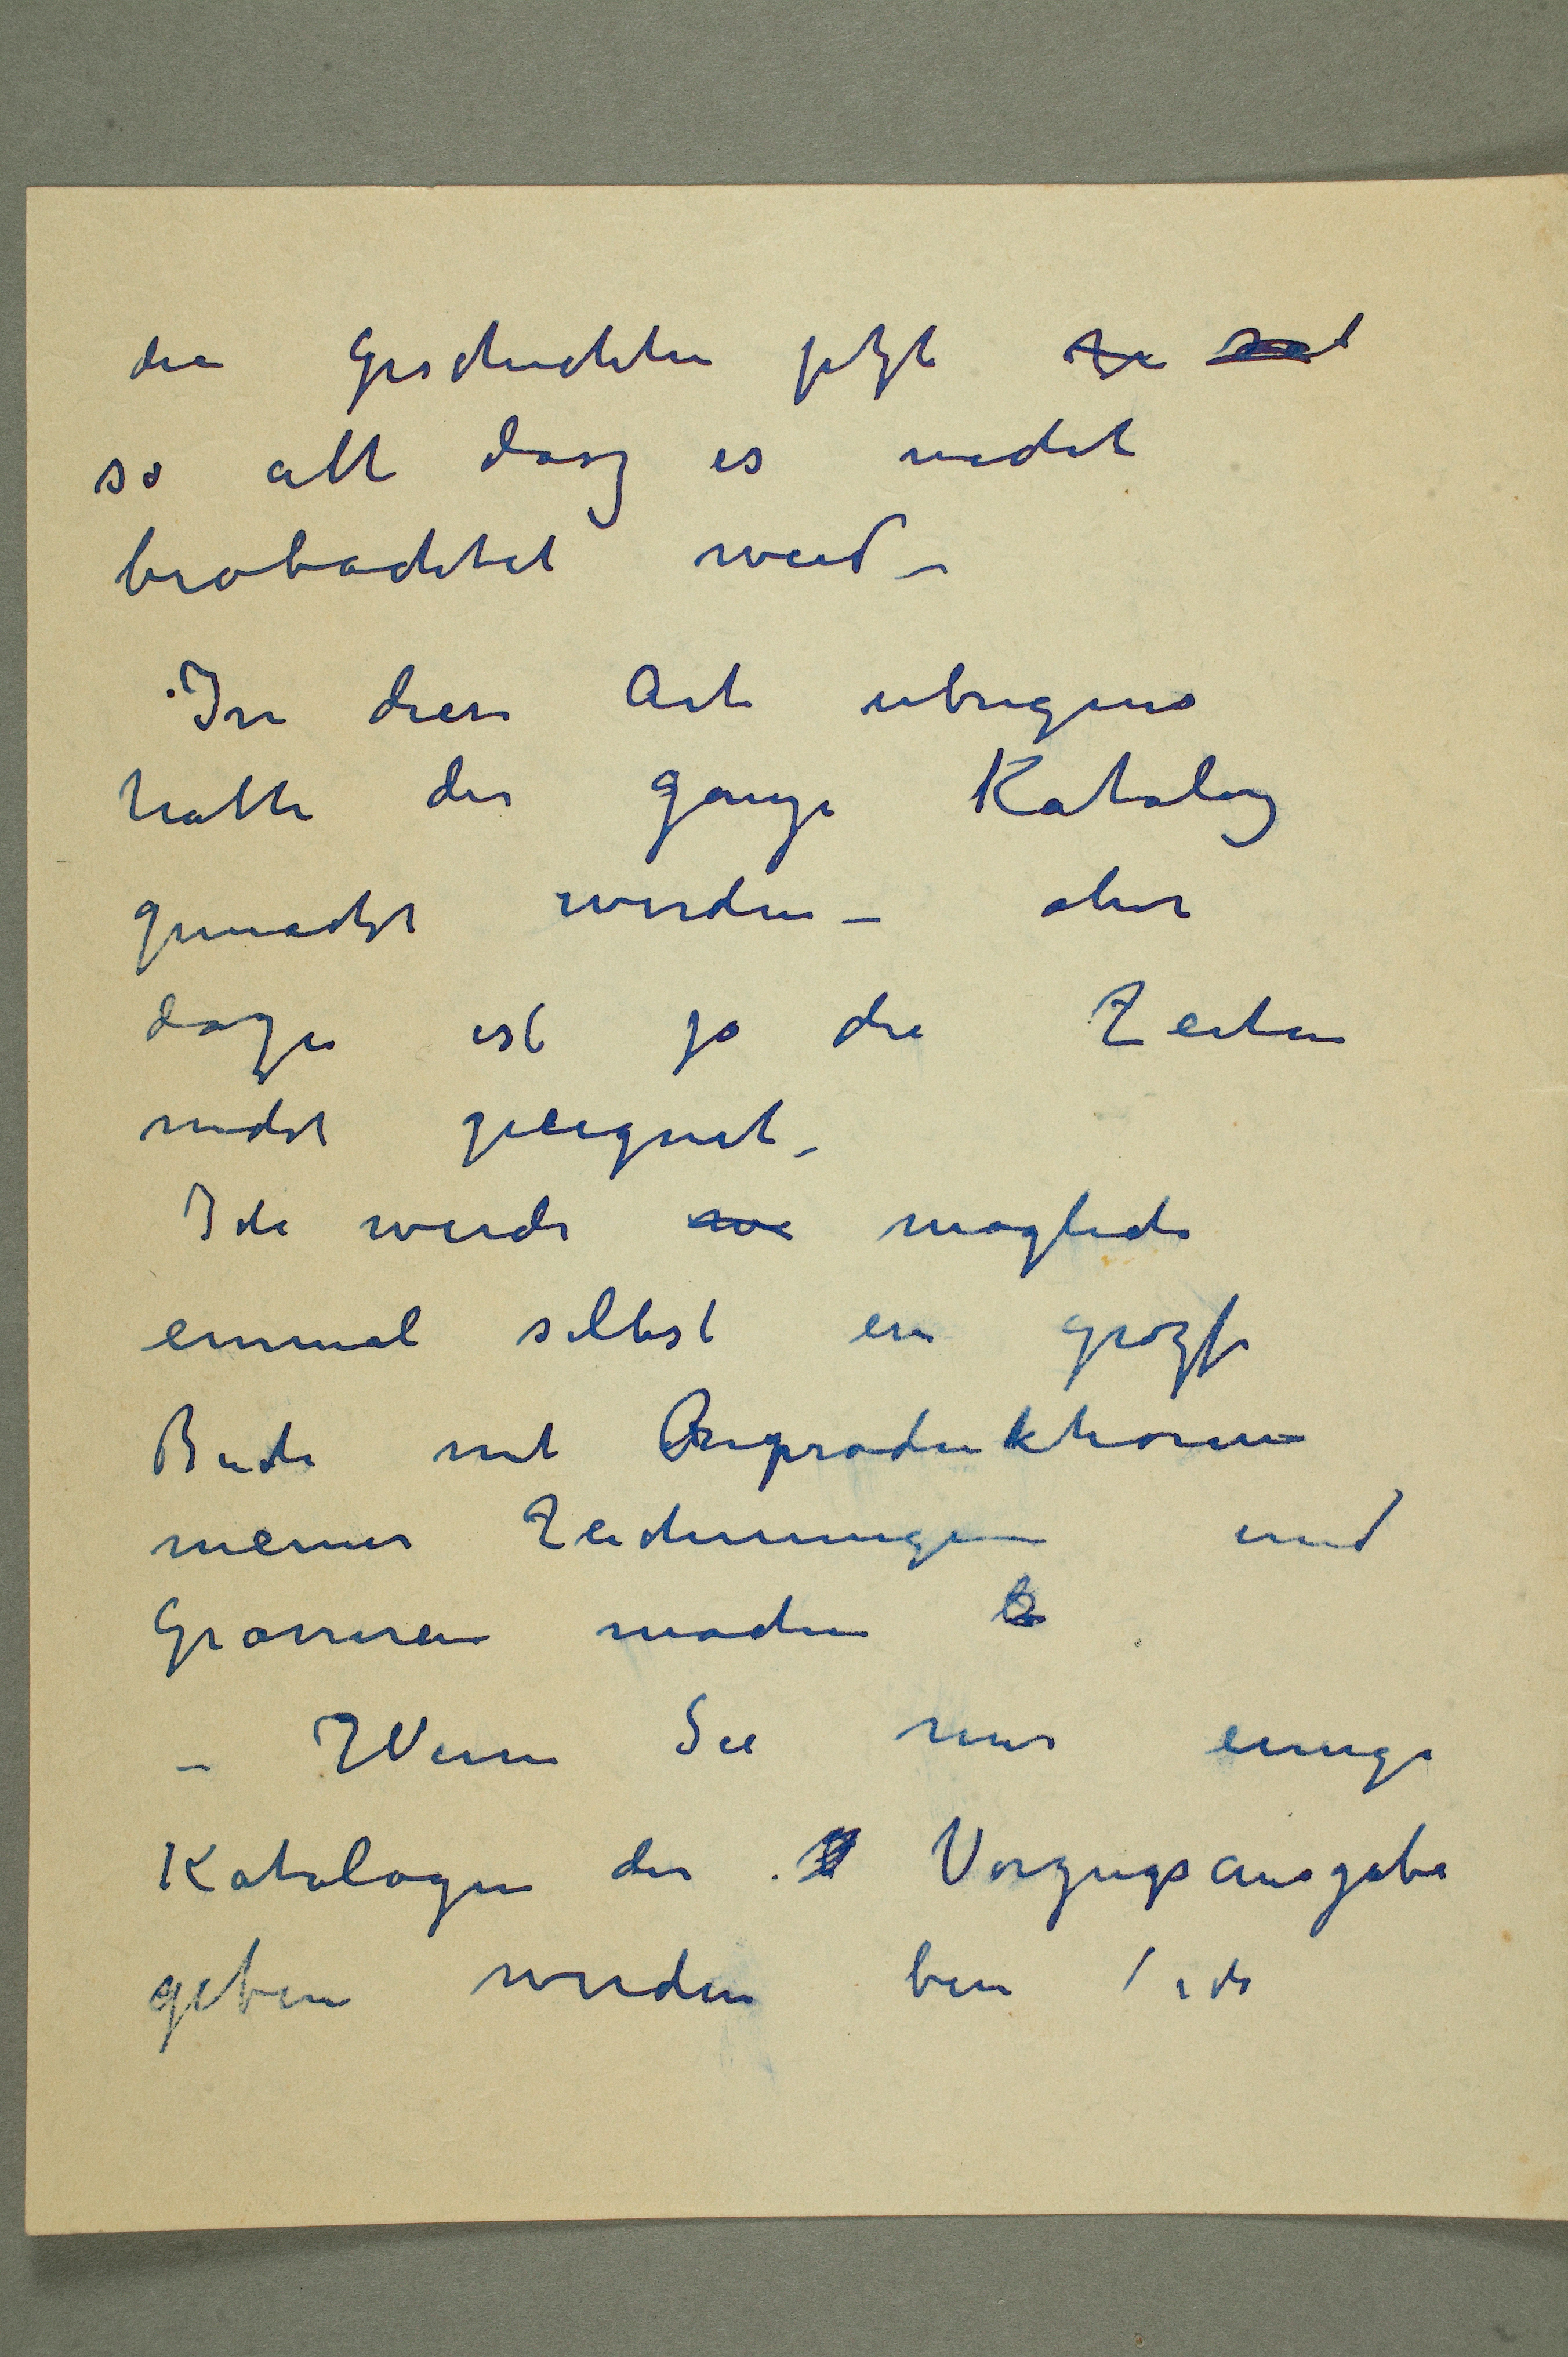 die Geschichte jetzt
so alt dasz es nicht
beobachtet wird –
In diese Art ubrigens
hatte der ganze Katalog
gemacht werden – aber
dazu ist ja die Zeiten
nicht geeignet –
Ich werde moglich
einmal selbst ein grozse
Buch mit Reproduktionen
meiner Zeichnungen und
Gravuren machen
– Wenn Sie mir einige
Kataloge der Vorzugsausgabe
geben werden bin ich